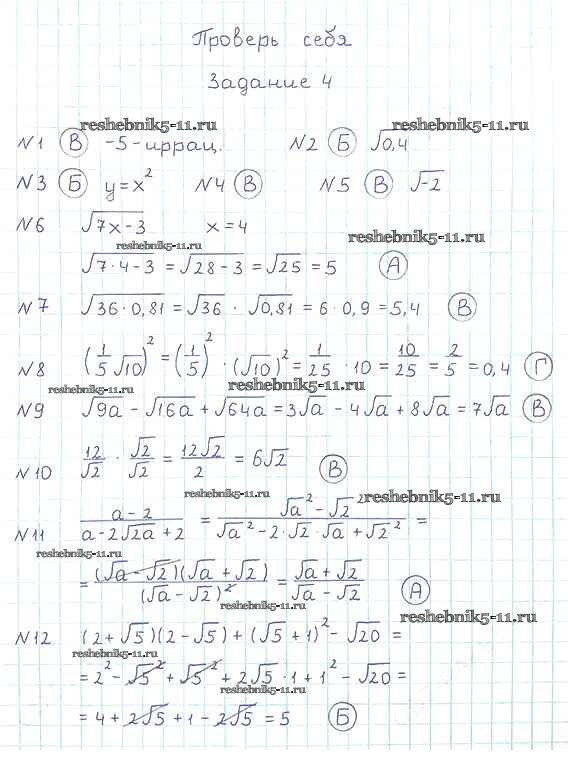 Проверь себя
Задание 4
reshebnik5-11.ru reshebnik5-11.ru
№1 В -5 - иррац. №2 Б √0,4
№3 Б y = x² №4 В №5 В √-2
№6 √7x-3 x = 4
reshebnik5-11.ru reshebnik5-11.ru
√7·4-3 = √28-3 = √25 = 5 А
№7 √36·0,81 = √36 · √0,81 = 6·0,9 = 5,4 В
№8 (1/5 √10)² = (1/5)² · (√10)² = 1/25 · 10 = 10/25 = 2/5 = 0,4 Г
reshebnik5-11.ru reshebnik5-11.ru
№9 √9a - √16a + √64a = 3√a - 4√a + 8√a = 7√a В
№10 12/√2 · √2/√2 = 12√2/2 = 6√2 В
reshebnik5-11.ru reshebnik5-11.ru
№11 a-2/a-2√2a+2 = √a² - √2²/√a² - 2·√2·√a + √2² =
reshebnik5-11.ru
= (√a - √2)(√a + √2)/(√a - √2)² = √a + √2/√a - √2 А
reshebnik5-11.ru reshebnik5-11.ru
№12 (2+√5)(2-√5) + (√5+1)² - √20 =
reshebnik5-11.ru
= 2² - √5² + √5² + 2√5·1 + 1² - √20 =
reshebnik5-11.ru
= 4 + 2√5 + 1 - 2√5 = 5 Б